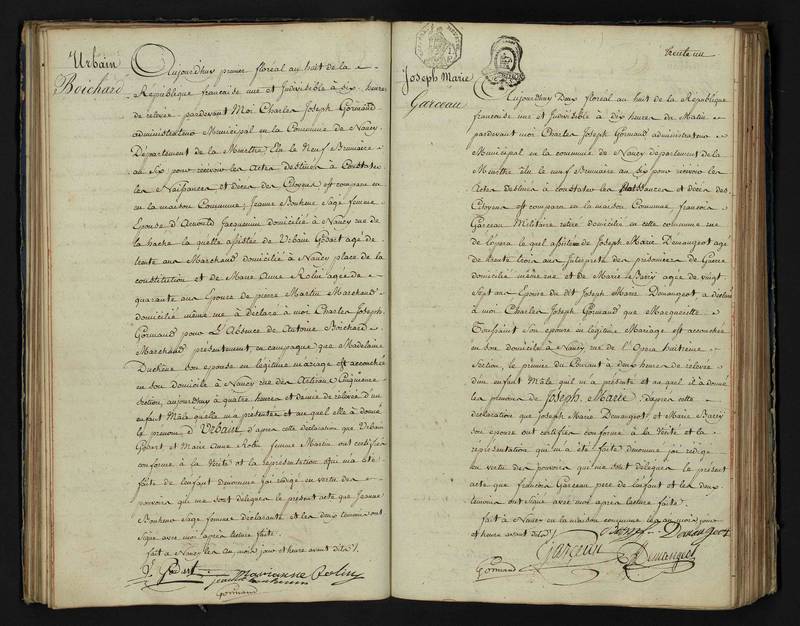 Urbain
Boichard
Aujourd'huy premier floréal an huit de la
République française une et Indivisible à six heures
de relevée pardevant Moi Charles Joseph Gormand
administrateur Municipal en la Commune de Nancy
Département de la Meurthe, Elu le Neuf Brumaire
an Six pour recevoir les Actes destinés à Constater
les Naissances et décès des Citoyens est comparue en
en la maison Commune, Jeanne Bonheme Sage femme
Epouse d'Arnould Jacquemin domiciliée à Nancy rue de
la hache la quelle assistée de Urbain Godart agé de
trente ans Marchand domicilié à Nancy place de la
constitution et de Marie Anne Rolin agée de
quarante ans Epouse de pierre Martin Marchand
domiciliée même rue à Déclaré à moi Charles Joseph
Gormand pour L'Absence de Antoine Boichard
Marchand présentement en campagne que Madelaine
Duchêne son epouse en légitime mariage est accouchée
en son domicile à Nancy rue des Artisans Cinquieme
Section, aujourd'huy à quatre heures et demie de relevée d'un
enfant Mâle quelle m'a présenté et au quel elle à donné
le prenom d'Urbain d'après cette déclaration que Urbain
Godart, et Marie Anne Rolin femme Martin ont certifiée
conforme à la Vérité et la représentation qui m'a été
faite de l'enfant dénommé j'ai rédigé en vertu des
pouvoirs qui me sont délégués le présent acte que Jeanne
Bonheme Sage femme déclarante et les deux témoins ont
Signé avec moi après lecture faite.
fait à Nancy les an mois jour et heure avant dits
U. Godart Marianne Rolin
Gormand
trente un
Joseph Marie
Garceau
Aujourd'huy Deux floréal an huit de la République
française une et Indivisible à dix heures du Matin
pardevant moi Charles Joseph Gormand administrateur
Municipal en la commune de Nancy département de la
Meurthe élu le neuf Brumaire an six pour recevoir les
Actes destinés à constater les Naissances et décès des
Citoyens est comparu en la maison Commune, françois
Garceau Militaire retiré domicilié en cette commune rue
de l'opera le quel assisté de Joseph Marie Demangeot agé
de trente trois ans Interprete des prisonniers de Guerre
domicilié même rue et de Marie Barsy agée de vingt
Sept ans Epouse du dit Joseph Marie Demangeot, a déclaré
à moi Charles Joseph Gormand que Marguerite
Toussaint Son epouse en légitime Mariage est accouchée
en son domicile à Nancy rue de l'Opera huitieme
Section, le premier du Courant à deux heures de relevée
d'un enfant Mâle quil m'a présenté et au quel il à donné
les prenoms de Joseph Marie. d'après cette
déclaration que Joseph Marie Demangeot et Marie Barsy
son epouse ont certifiée conforme à la Vérité et la
représentation qui m'a été faite dénommé j'ai rédigé
en vertu des pouvoirs qui me sont délégués le présent
acte que françois Garceau pere de l'enfant et les deux
temoins ont signé avec moi après lecture faite.
fait à Nancy en la maison commune les an mois jour
et heure avant dits
Demangeot
Garceau Demangeot
Gormand